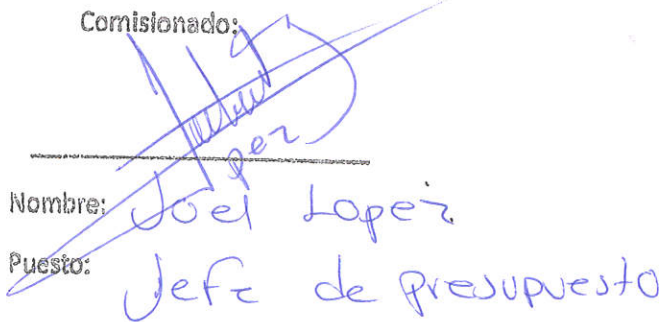 Comisionado:
Nombre: Joel Lopez
Puesto: Jefe de presupuesto